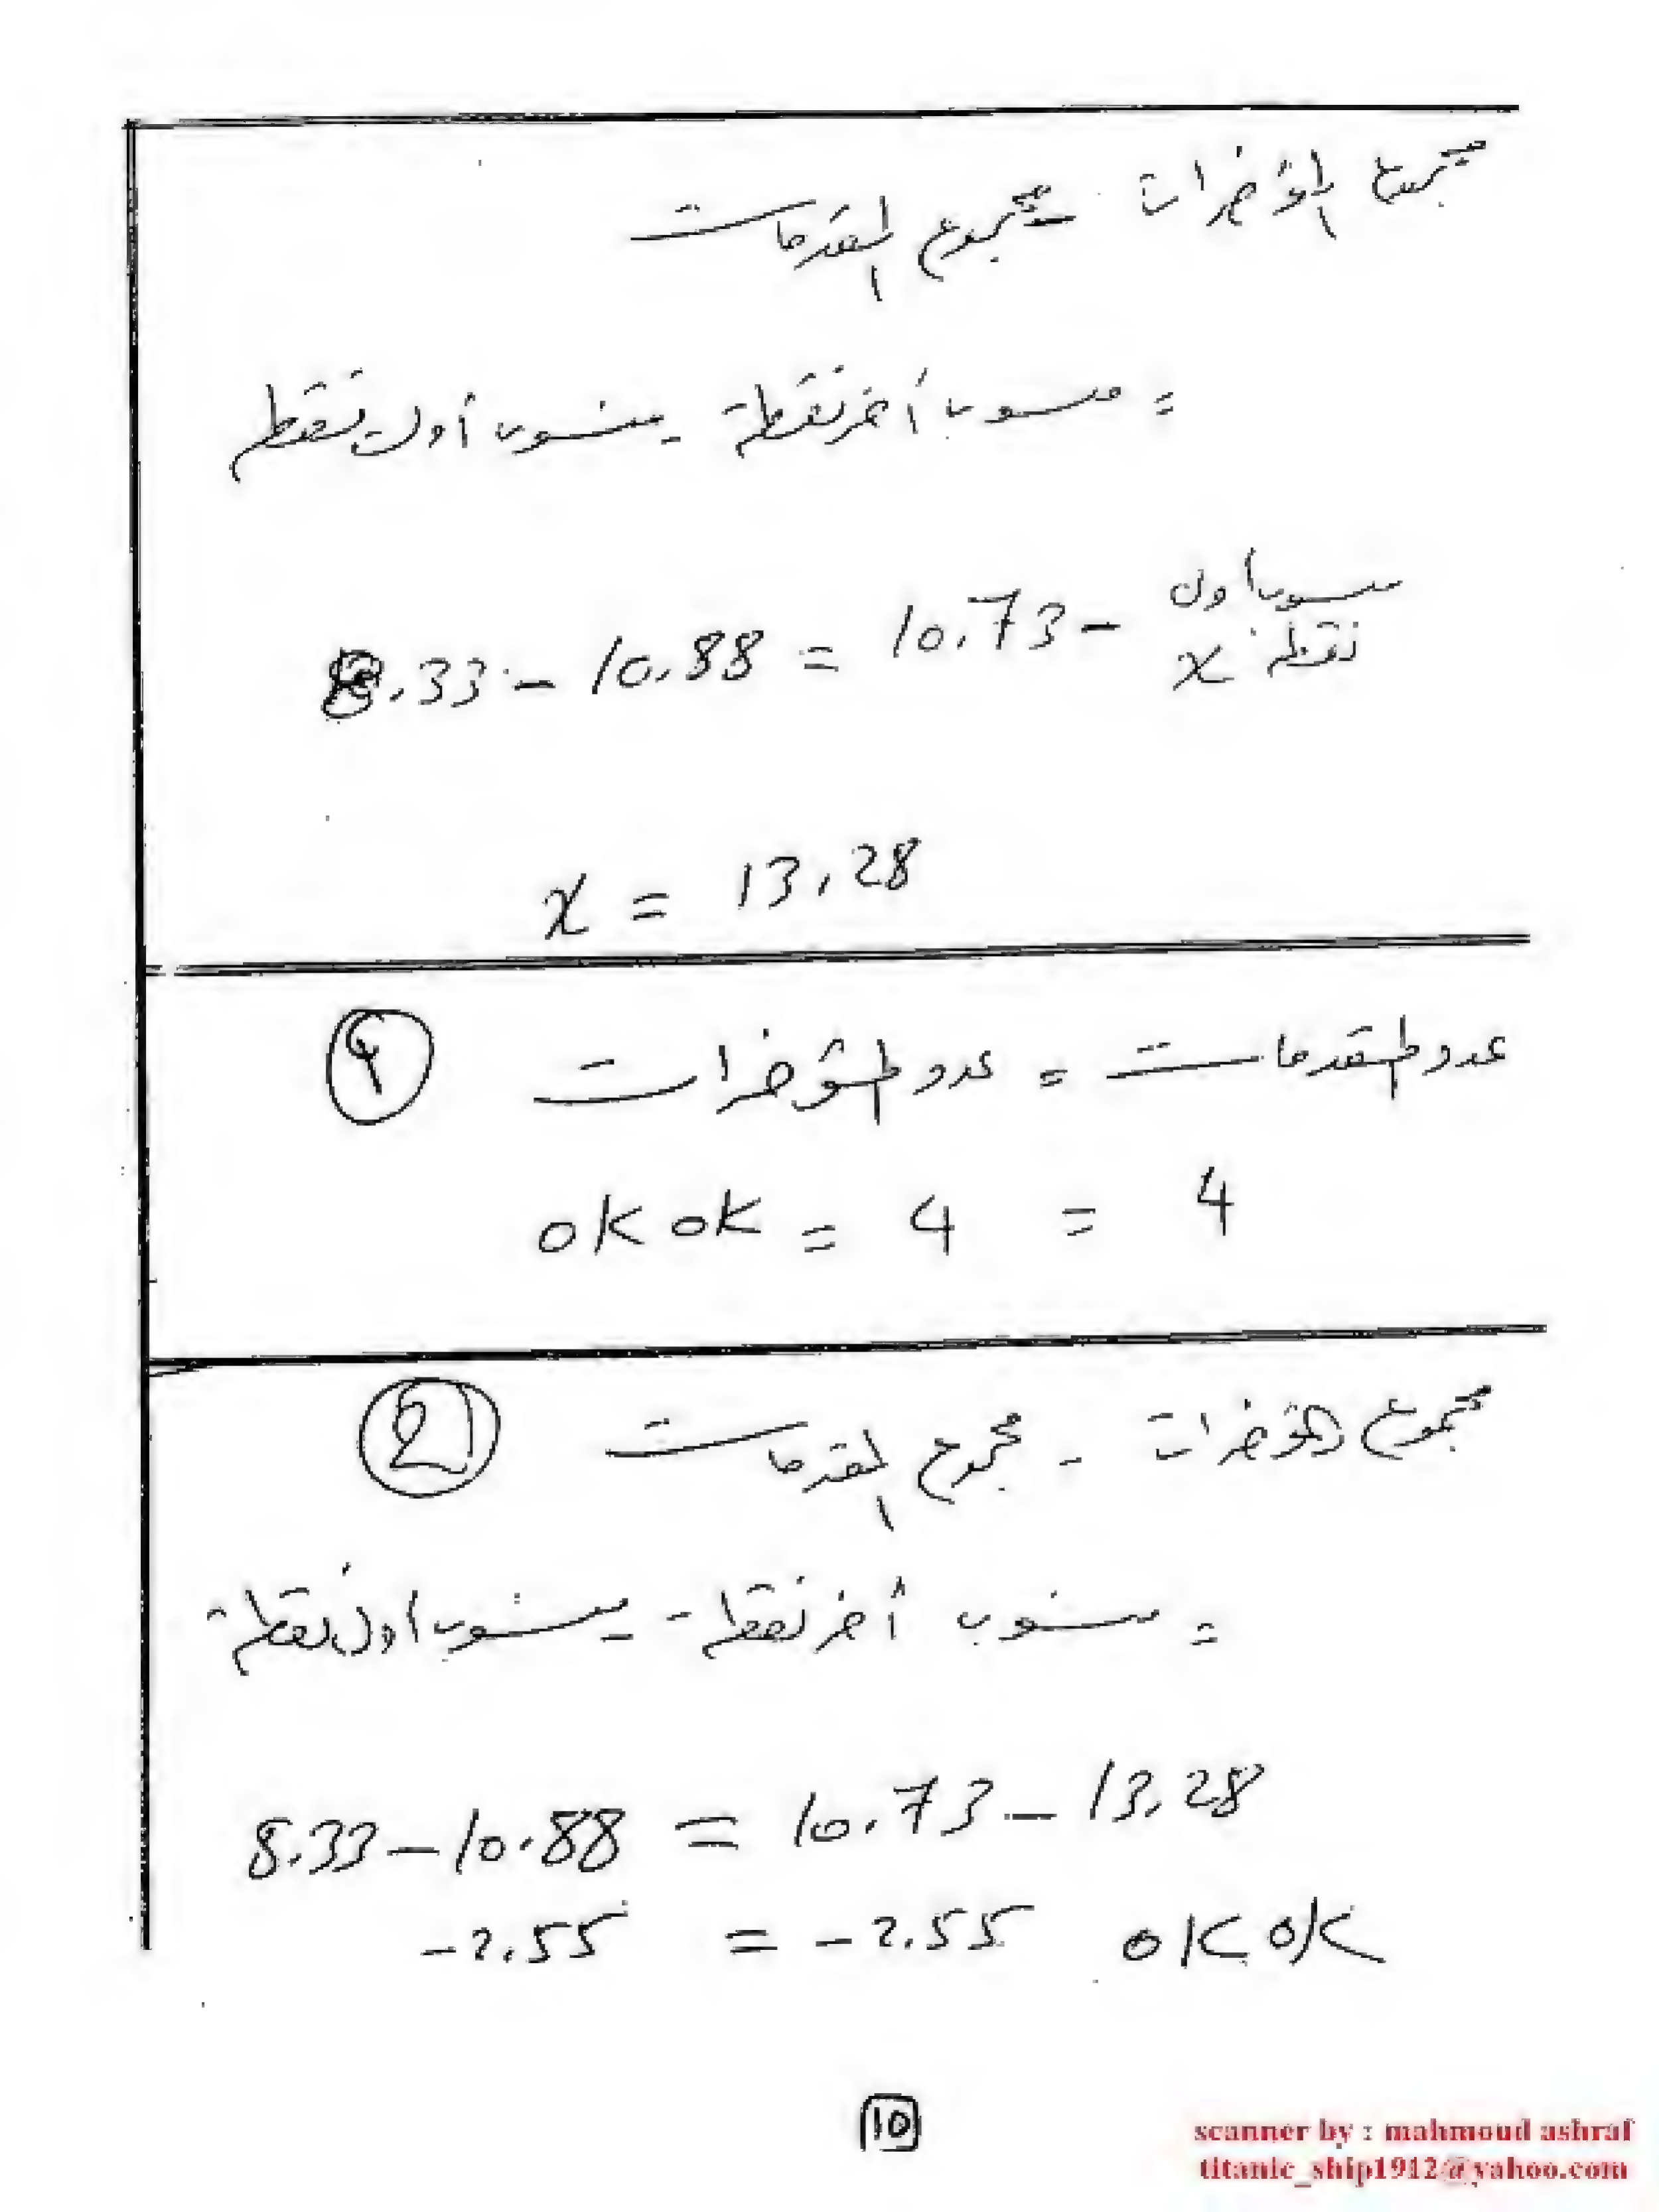 مجموع المؤخرات - مجموع المقدمات
= منسوب أخر نقطة - منسوب أول نقطة
8.33 - 10.88 = 10.73 - منسوب اول نقطة x
x = 13.28
عدد المقدمات = عدد المؤخرات
4 = 4 = ok ok
مجموع المؤخرات - مجموع المقدمات 2
= منسوب أخر نقطة - منسوب اول نقطة
8.33 - 10.88 = 10.73 - 13.28
-2.55 = -2.55 ok ok
10
scanner by : mahmoud ashraf
titanic_ship1912@yahoo.com